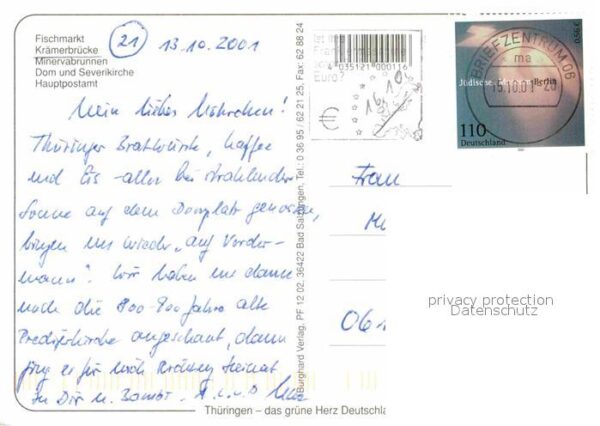 Fischmarkt
Krämerbrücke
Minervabrunnen
Dom und Severikirche
Hauptpostamt
21 13.10.2001
Mein liebes !
Thüringer Bratwürste, Kaffee
und Eis - alles bei strahlender
Sonne auf dem Domplatz genossen,
bringen uns wieder "auf Vorder-
mann". Wir haben uns dann
noch die 800-900 Jahre alte
Predigerkirche angeschaut, dann
ging es für mich Richtung Heimat
zu Dir u. Bambi.
Burghard Verlag, PF 12 02, 36422 Bad Salzungen, Tel.: 0 36 95 / 62 21 25, Fax: 62 88 24
4 035121 000116
Euro?
€
16.10.
BRIEFZENTRUM 06
ma
15.10.01 - 20
Jüdisches Museum Berlin
110
Deutschland
Frau
06
privacy protection
Datenschutz
Thüringen – das grüne Herz Deutschla